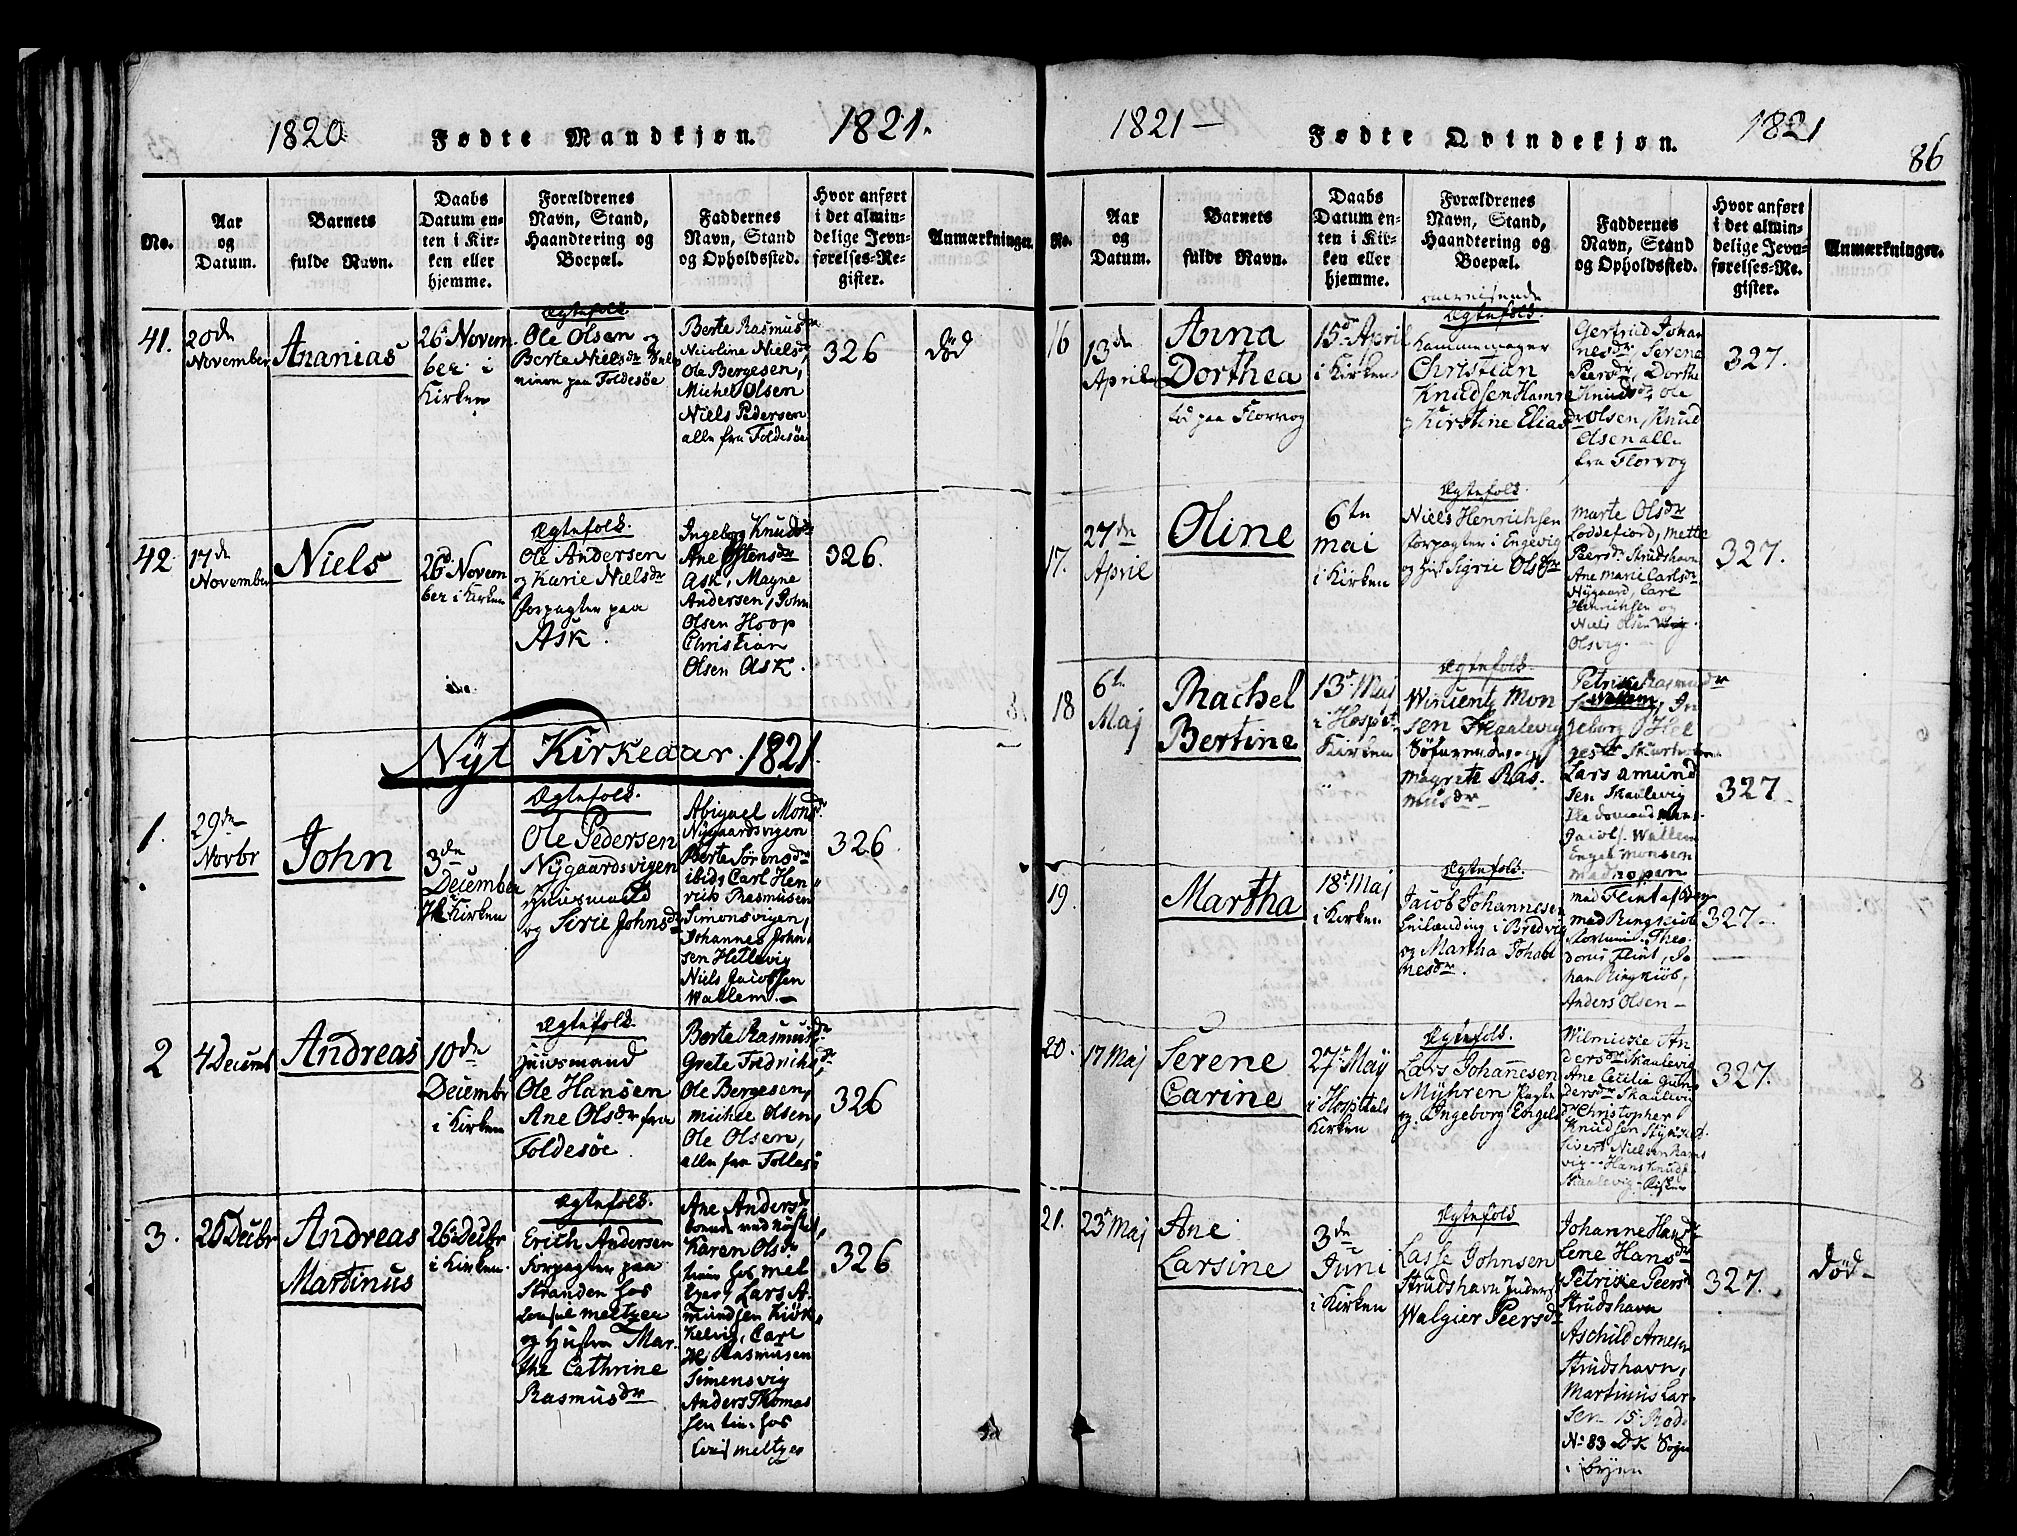 1820
Fødte Mandkjøn.
1821.
No.
Aar
og
Datum.
Barnets
fulde Navn.
Daabs
Datum en-
ten i Kir-
ken eller
hjemme.
Forældrenes
Navn, Stand,
Haandtering og
Boepæl.
Faddernes
Navn, Stand
og Opholdssted.
Hvor anført
i det almin-
delige Jevn-
førelses-Re-
gister.
Anmærkninger.
41.
20de
November
Ananias
26 Novem
ber i
Kirken
Ægtefolk
Ole Olsen
Berte Nielsdr
paa Foldesøe
Berte Rasmusdr
Nicoline Nielsdr
Ole Bergesen,
Michel Olsen
Niels Pedersen
alle fra Foldesøe
326
død
42
17de
November
Niels
26 Novem
ber i Kirken
Ægtefolk.
Ole Andersen
og Karie Nielsdr
forpagter paa
Ask.
Ingeborg Knudsdr
Ane Ostensdr
Ask, Magne
Andersen, John
Olsen Hoop
Christian
Olsen Ask.
326.
Nyt Kirkeaar 1821.
1.
29de
Novbr
John
3de
December
i Kirken
Ægtefolk.
Ole Pedersen
Nygaardsvigen
Huusmand
og Sirie Johnsdr
Abigael Monsdr
Nygaardsvigen
Berte Sørensdr
ibid, Carl Hen-
rich Rasmusen
Simonsvigen,
Johannes John
sen Hellevig
Niels Jacobsen
Wallem.
326.
2
4 Decemb
Andreas
10de
Decembr
i Kirken
Ægtefolk.
Huusmand
Ole Hansen
Ane Olsdr fra
Foldesøe.
Berte Rasmusdr
Grete Fredriksdr
Ole Bergesen,
Michel Olsen,
Ole Olsen,
alle fra Follesø
326
3.
25 Decbr
Andreas
Martinus
26 Decbr
i Kirken.
Ægtefolk.
Erich Andersen
Forpagter paa
Stranden hos
Consul Meltzer
og Hustru Mar-
the Cathrine
Rasmusdr
Ane Andersdr
boende ved
Karen Olsdr
hos Mel
tzer, Lars A-
mundsen Kiøk-
kelvig, Carl
H. Rasmusen
Simensvig
Anders Thomas
sen hos
Consul Meltzer
326
1821
Fødte Qvindekjøn.
1821
86
No.
Aar
og
Datum.
Barnets
fulde Navn.
Daabs
Datum en-
ten i Kir-
ken eller
hjemme.
Forældrenes
Navn, Stand,
Haandtering og
Boepæl.
Faddernes
Navn, Stand
og Opholdssted.
Hvor anført
i det almin-
delige Jevn-
førelses-Re-
gister.
Anmærkninger.
16
13de
April
Anna
Dorthea
paa Florvog
15de April
i Kirken
omreisende
Ægtefolk.
Kammemager
Christian
Knudsen Hamre
og Kirstine Eliasdr
Gertrud Johan
nesdr, Serene
Peersdr, Dorthe
Knudsdr, Ole
Olsen, Knud
Olsen alle
fra Florvog
327.
17.
27de
April
Oline
6te
Mai
i Kirken
Ægtefolk.
Niels Henrichsen
forpagter i Engevig
og Sigrie Olsdr
Marte Olsdr
Loddefiord, Mette
Peersdr Strudshavn
Ane Marie Carlsdr
Nygaard, Carl
Henrichsen og
Niels Olsen
Olsvig.
327.
18
6te
Maj
Rachel
Bertine
13de Maj
i Hospit
Kirken
Ægtefolk.
Wincentz Mon
sen Skaalevig
Søfarende, og
Magrete Ras
musdr
Petrike Rasmusdr
Wallem, In
geborg Hel
gesdr
Lars Amund
sen Skaalevig
Jacob J. Wallem
Engel Monsen
327.
19.
Martha
18de Maj
i Kirken
Ægtefolk.
Jacob Johannesen
i Bredvig
og Martha Johan
nesdr.
Mad
mad Flint af
mad Ringkiøb
Theo-
dorus Flint, Jo
han Ringkiøb,
Anders Olsen
327.
20.
17 Maj
Serene
Carine
27de Maj
i Hospitals
Kirken
Ægtefolk.
Lars Johannesen
Myhren
og Ingeborg Engels
Wilmicke An
dersdr Skaalevig
Ane Cecilia Gun
dersdr Skaalevig
Christopher
Knudsen
Sivert Nielsen Rams
vig - Hans Knuds
Skaalevig
327.
21.
23 Maj
Ane
Larsine
3de
Juni
i Kirken
Ægtefolk
Lasse Johnsen
Strudshavn Inderst
Walgier Peersdr
Johanne Hansdr
Lene Hansdr
Petrike Peersdr
Strudshavn
Aschild Arnesen
Strudshavn,
Martinus Lar
sen 15 Rode
No 83 DK Sogn
i Byen
327.
død